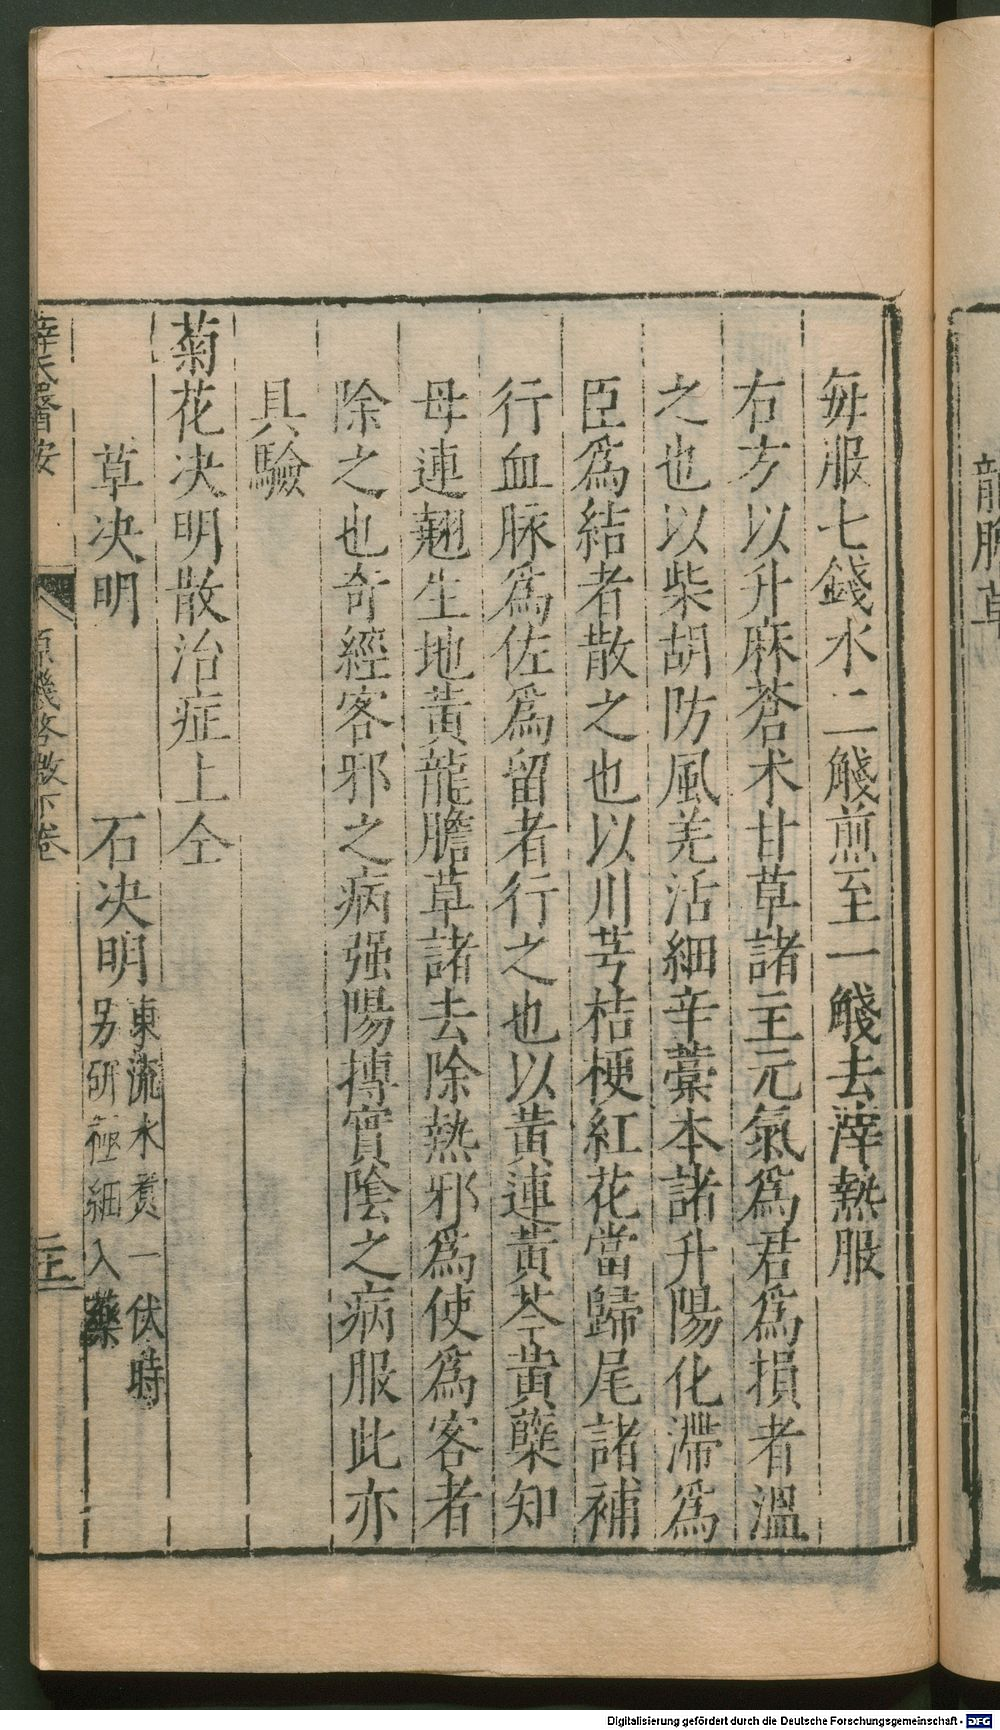 龍膽草
每服七錢水二𬪩煎至一𬪩去滓熱服
右方以升麻蒼术甘草諸主元氣爲君爲損者溫
之也以柴胡防風羌活細辛藁本諸升陽化滯爲
臣爲結者散之也以川芎桔梗紅花當歸尾諸補
行血脉爲佐爲留者行之也以黃連黃芩黃蘗知
母連翹生地黃龍膽草諸去除熱邪爲使爲客者
除之也奇經客邪之病强陽搏實陰之病服此亦
具驗
菊花决明散治症上仝
草决明　石决明東流水煑一伏時
另研極細入藥
薛氏醫按　原機啓微下卷
Digitalisierung gefördert durch die Deutsche Forschungsgemeinschaft - DFG